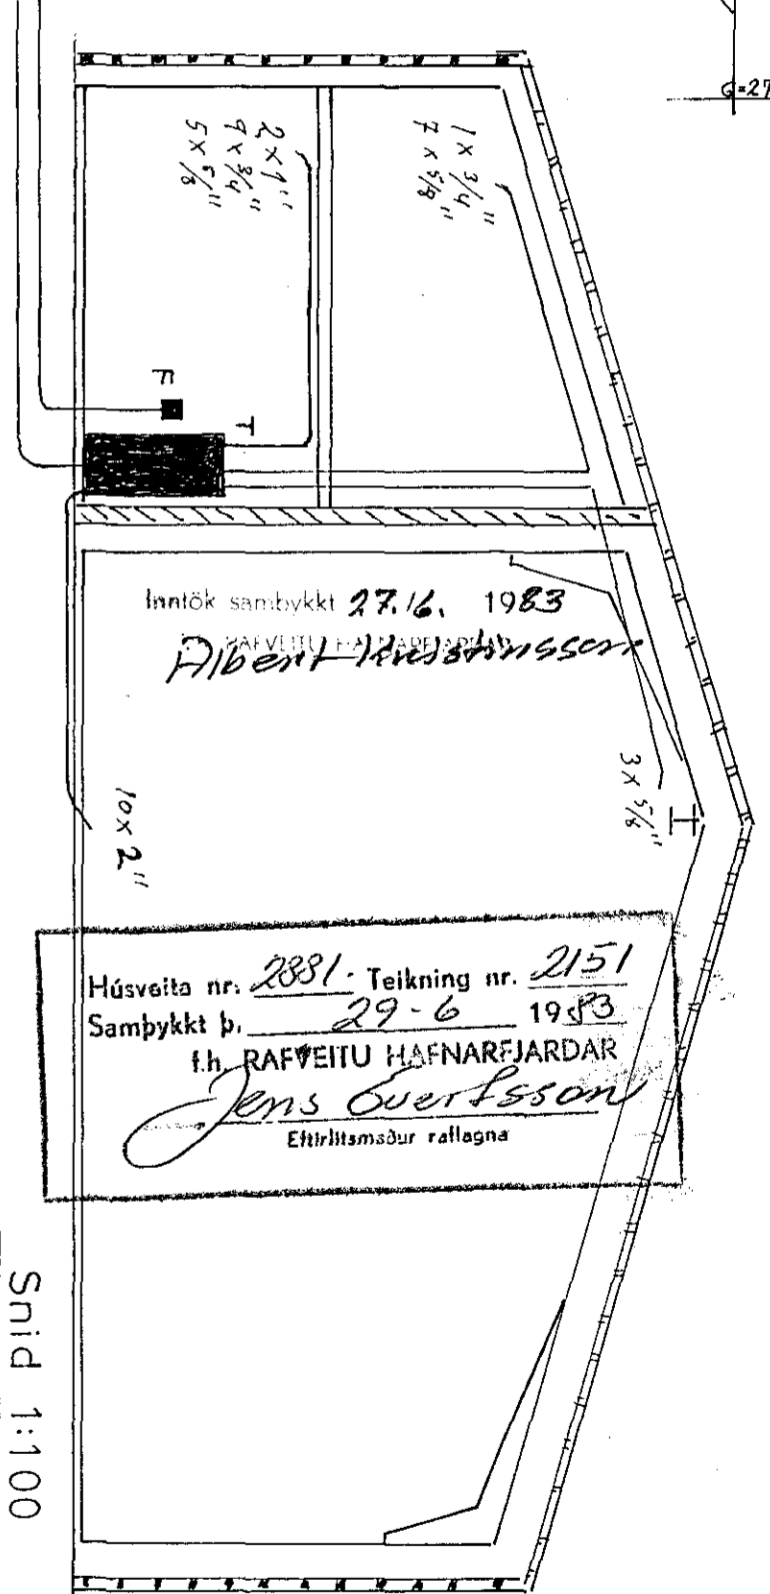 G=27
2 x 1"
9 x 3/4"
5 x 5/8"
1 x 3/4"
7 x 5/8"
F
T
Inntök samþykkt 27.16. 1983
RAFVEITU HAFNARFJARÐAR
Albert Kristinsson
3 x 5/8"
10 x 2"
Húsveita nr. 2881. Teikning nr. 2151
Samþykkt þ. 29-6 1983
f.h. RAFVEITU HAFNARFJARÐAR
Jens Evertsson
Eftirlitsmaður raflagna
Snid 1:100